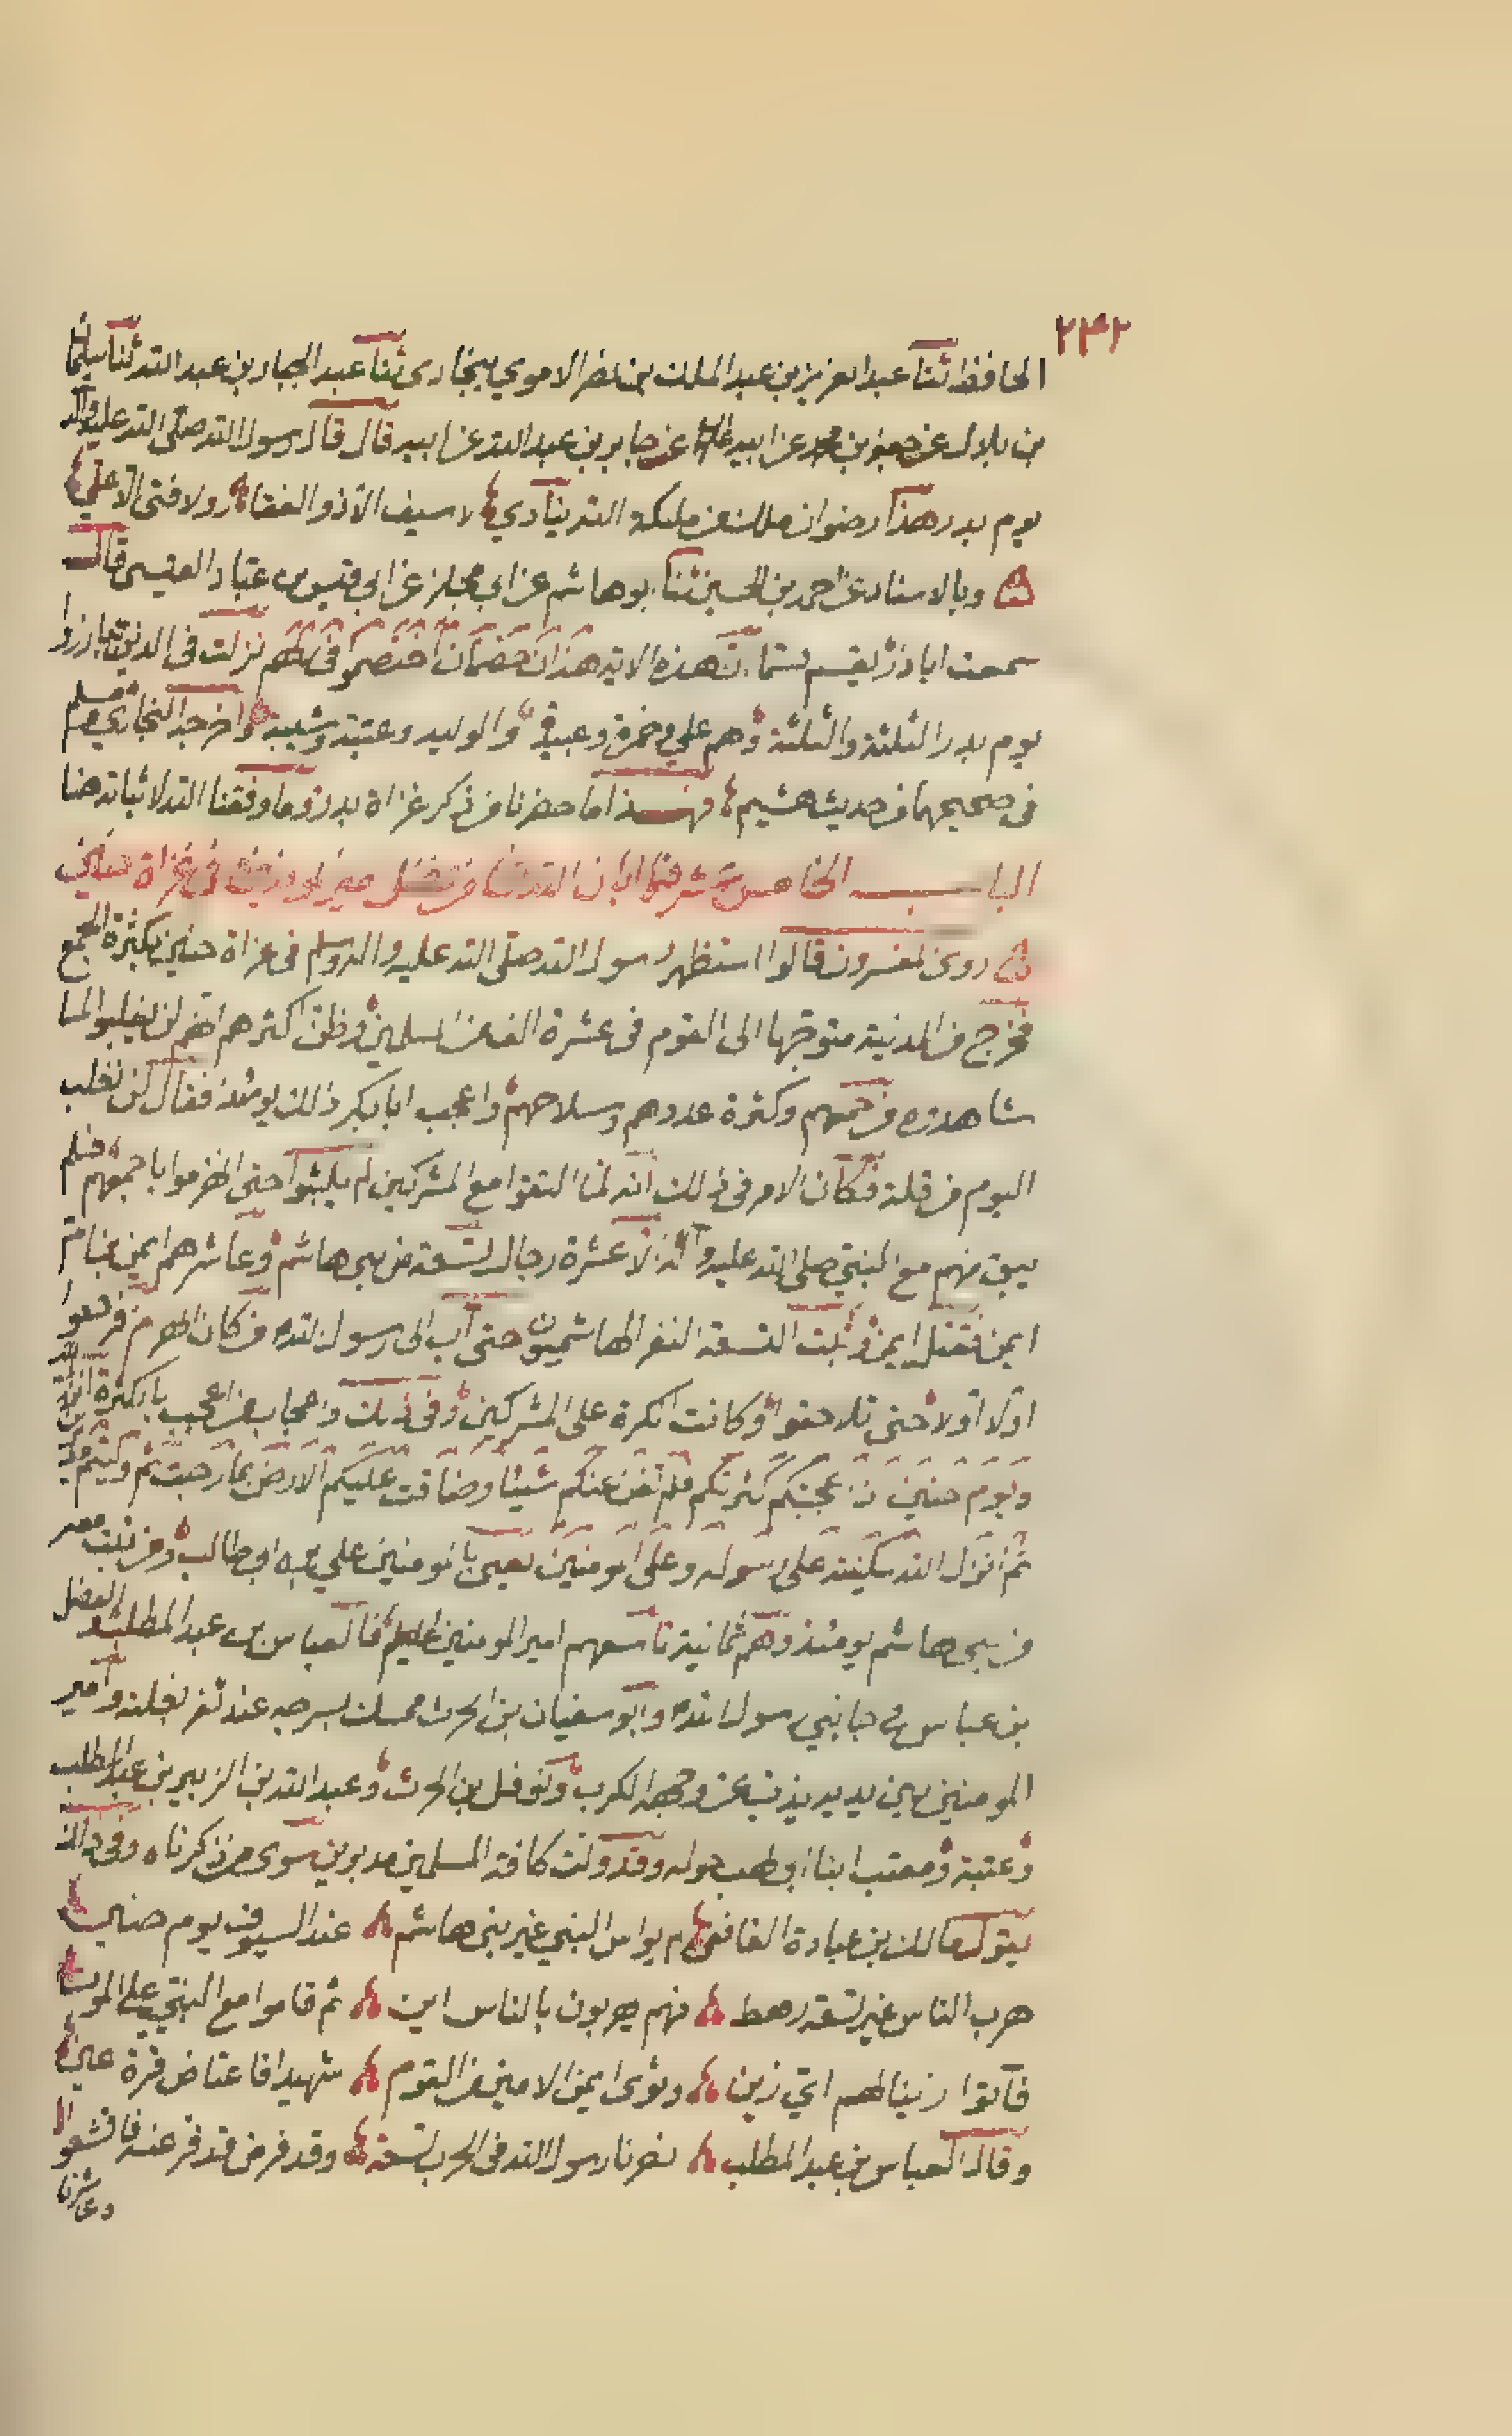 ٢٤٢
الحافظ ثنا عبد العزيز بن عبد الملك بن نصر الاموي ببخارى ثنا عبد الجبار بن عبد الله ثنا سليمان
بن بلال عن جعفر بن محمد عن ابيه عن جابر بن عبد الله عن ابيه قال قال رسول الله صلى الله عليه وآله
يوم بدر هذا رضوان ملك من ملئكة الله ينادي لا سيف الا ذو الفقار ولا فتى الا علي
وبالاسناد عن احمد بن الحسين ثنا ابو هاشم عن ابي مجلز عن ابي قيس بن عباد القيسى قال
سمعت ابا ذر يقسم قسما ان هذه الاية هذان خصمان اختصموا فى ربهم نزلت فى الذين تبارزوا
يوم بدر الثلثة والثلثة وهم علي وحمزة وعبيدة والوليد وعتبة وشيبة واخرجه البخاري ومسلم
فى صحيحهما من حديث هشيم فهذا ما حضرنا من ذكر غزاة بدر وما وفقنا الله لاثباته هنا
الباب الخامس عشر فيما ابان الله تعالى من فضل امير المؤمنين فى غزاة حنين
روى المفسرون قالوا استظهر رسول الله صلى الله عليه وآله وسلم فى غزاة حنين بكثرة الجمع
فخرج من المدينة متوجها الى القوم فى عشرة الف من المسلمين وظن اكثرهم انهم لن يغلبوا لما
شاهدوه من جمعهم وكثرة عددهم وسلاحهم واعجب ابا بكر ذلك يومئذ فقال لن نغلب
اليوم من قلة فكان الامر فى ذلك انه لما التقوا مع المشركين لم يلبثوا حتى انهزموا باجمعهم فلم
يبق منهم مع النبي صلى الله عليه وآله الا عشرة رجال تسعة من بني هاشم وعاشرهم ايمن بن ام
ايمن فقتل ايمن وثبت التسعة النفر الهاشميون حتى آب الى رسول الله من كان انهزم فرجعوا
اولا اولا حتى تلاحقوا وكانت الكرة على المشركين وفى ذلك واعجاب من اعجب بالكثرة انزل الله
ويوم حنين اذ اعجبتكم كثرتكم فلم تغن عنكم شيئا وضاقت عليكم الارض بما رحبت ثم وليتم مدبرين
ثم انزل الله سكينته على رسوله وعلى المومنين يعنى بالمومنين علي بن ابي طالب ومن ثبت معه
من بني هاشم يومئذ وهم ثمانية تاسعهم امير المومنين فالعباس بن عبد المطلب والفضل
بن عباس في جانبي رسول الله وابو سفيان بن الحرث ممسك بسرجه عند ثفر بغلته وامير
المومنين بين يديه يذب عن وجهه الكرب ونوفل بن الحرث وعبد الله بن الزبير بن عبد المطلب
وعتبة ومعتب ابنا ابي لهب حوله وقد ولت كافة المسلمين مدبرين سوى من ذكرناه وفى ذلك
يقول مالك بن عبادة الغافقي لم يواس النبي غير بني هاشم عند السيوف يوم حنين
هرب الناس غير تسعة رهط فهم يهربون بالناس اين ثم قاموا مع النبي على الموت
فآبوا زينا لهم اي زين وثوى ايمن الامين من القوم شهيدا فاعتاض قرة عين
وقال العباس بن عبد المطلب نصرنا رسول الله فى الحرب تسعة وقد فر من قد فر عنه فاقشعوا
وعاشرنا